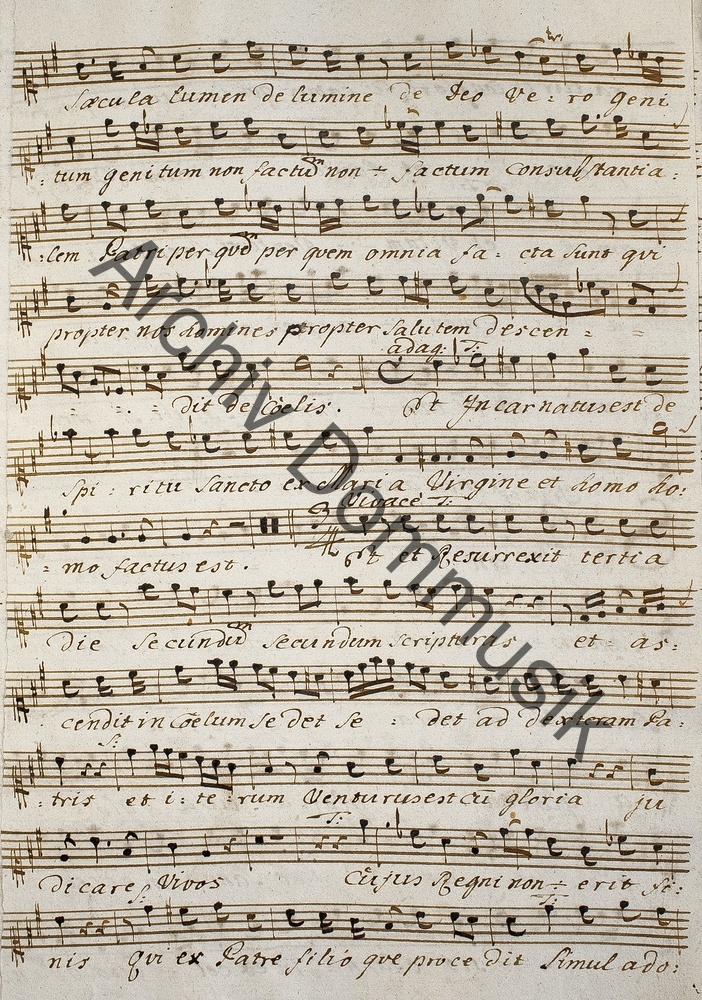 Sæcula lumen de lumine de Deo Ve = ro geni
= tum genitum non factum non ÷ factum Consubstantia =
= lem Patri per quē per quem omnia fa = cta sunt qui
propter nos homines propter Salutem descen = =
adag: T:
= . = dit de Cœlis . Et Incarnatus est de
Spi = ritu Sancto ex Maria Virgine et homo ho =
Vivace T:
= mo factus est . 3/4 Et et Resurrexit tertia
die secundū secundum scripturas et = as =
cendit in Cœlum sedet se = det ad dexteram Pa =
S:
= tris et i = te = rum Venturus est cū gloria ju
T:
dicare Vivos Cujus Regni non ÷ erit fi =
S: T:
nis qui ex Patre filio que procedit Simul ado =
Archiv Dommusik